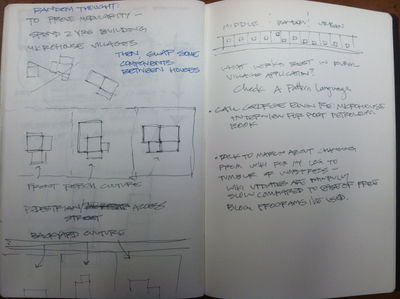 RANDOM THOUGHT:
TO PROVE MODULARITY —
SPEND 2 YRS BUILDING
MICROHOUSE VILLAGES
THEN SWAP SOME
COMPONENTS
BETWEEN HOUSES
?
?
?
FRONT PORCH CULTURE
PEDESTRIAN ACCESS
STREET
BACKYARD CULTURE
MIDDLE 'RANDOM' URBAN
WHAT WORKS BEST IN RURAL
VILLAGE APPLICATION?
Check A Pattern Language
• CALL GEORGE RE: MICROHOUSE
INTERVIEW FOR POST PETROLEUM
BOOK
• TALK TO MARCIN ABOUT CHANGING
FROM WIKI FOR MY LOG TO
TUMBLR OR WORDPRESS —
WIKI UPDATES ARE PAINFULLY
SLOW COMPARED TO REST OF FREE
BLOG PROGRAMS I'VE USED.